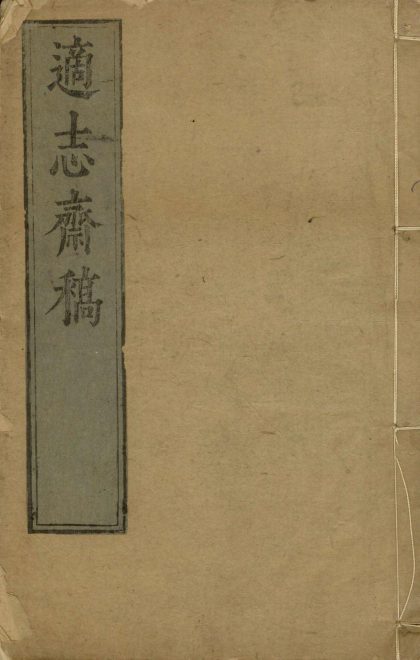 適志齋稿